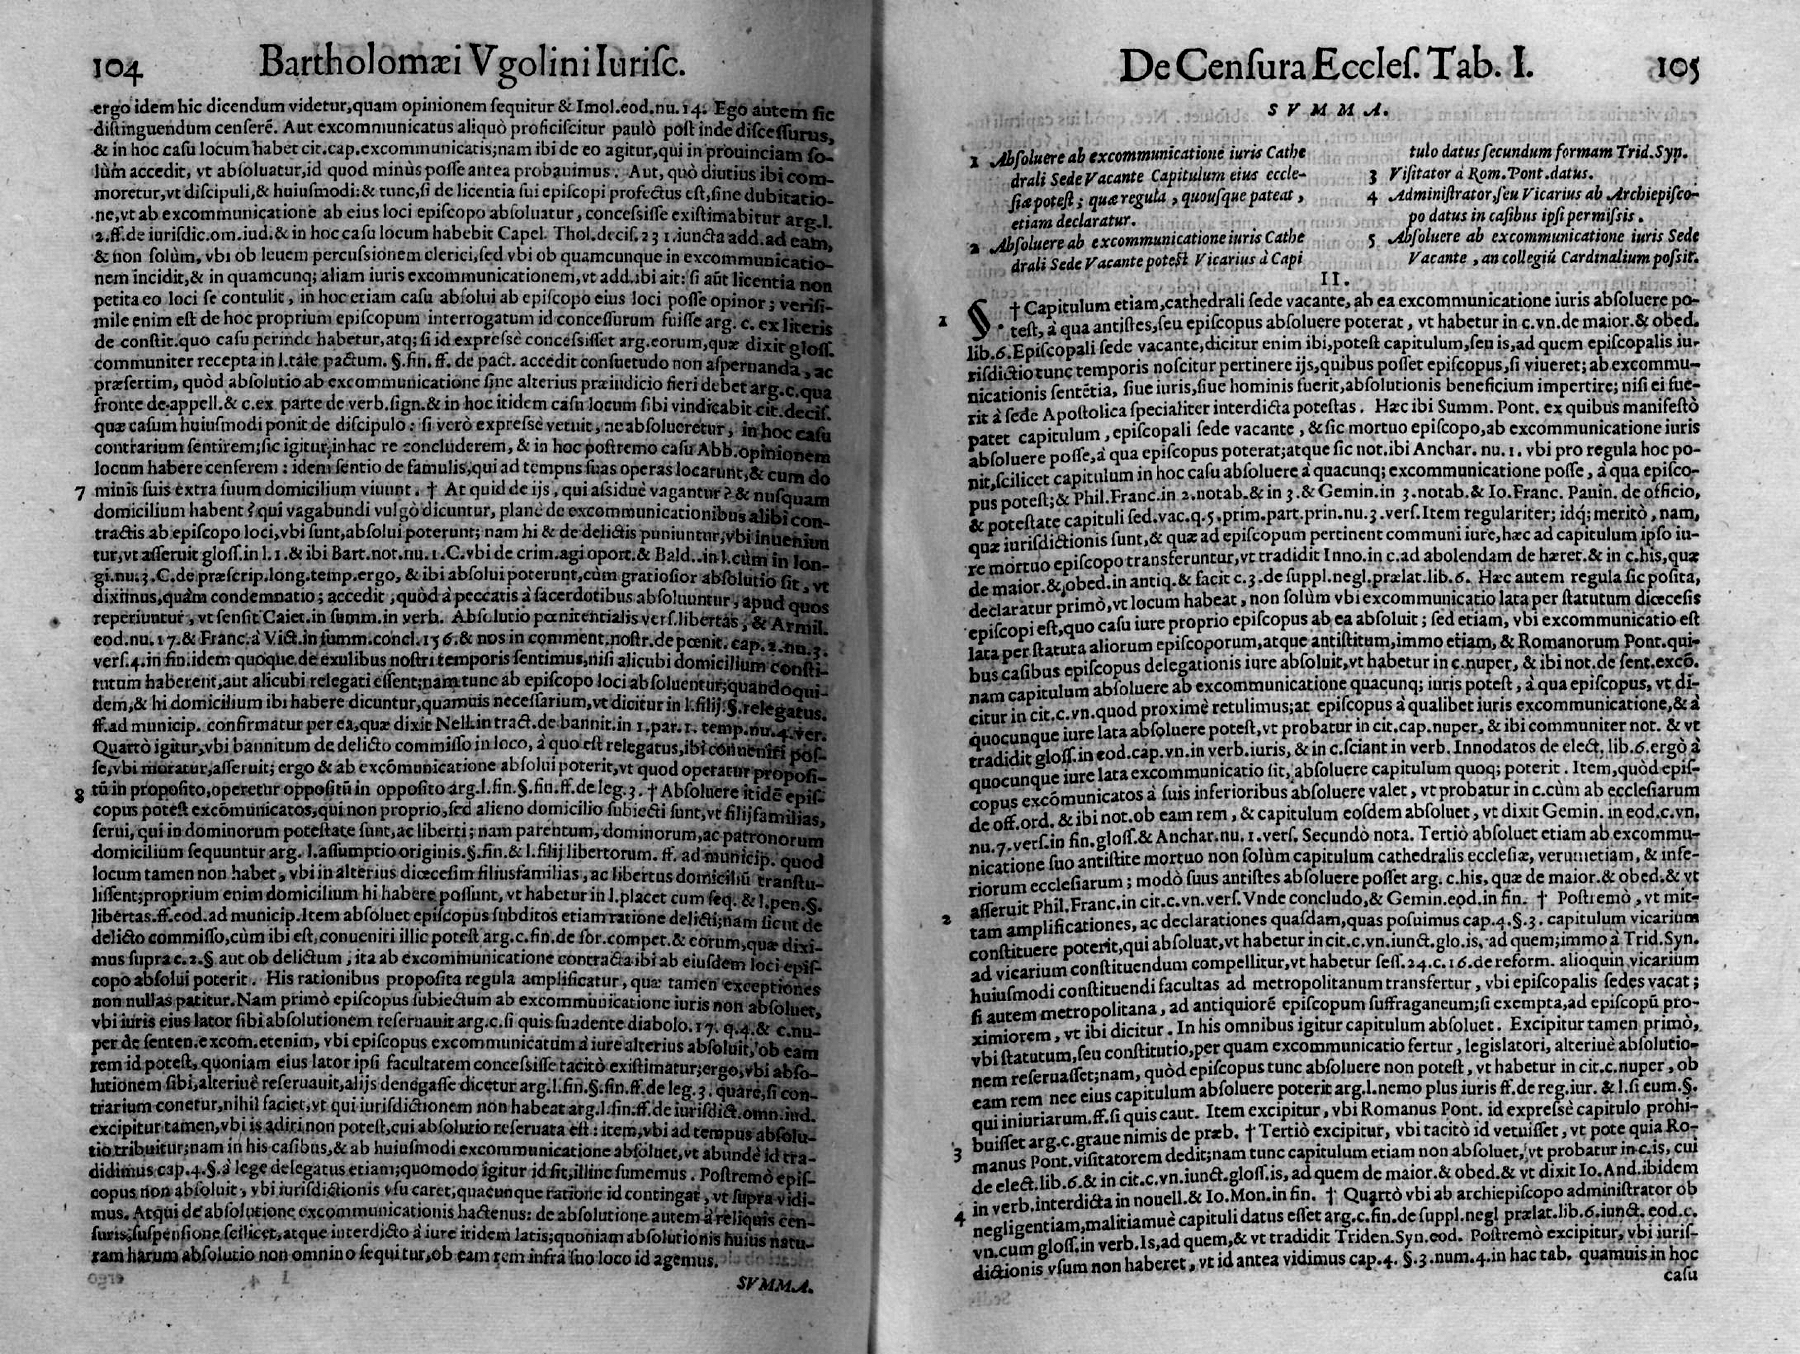 104 Bartholomæi Vgolini Iurisc.
ergo idem hic dicendum videtur,quam opinionem sequitur & Imol.eod.nu.14. Ego autem sic
distinguendum censerē. Aut excommunicatus aliquò proficiscitur paulò post inde discessurus,
& in hoc casu locum habet cit.cap.excommunicatis;nam ibi de eo agitur,qui in prouinciam so-
lùm accedit, vt absoluatur,id quod minùs posse antea probauimus. Aut, quò diutius ibi com-
moretur,vt discipuli,& huiusmodi:& tunc,si de licentia sui episcopi profectus est,sine dubitatio-
ne,vt ab excommunicatione ab eius loci episcopo absoluatur, concessisse existimabitur arg.l.
2.ff.de iurisdic.om.iud.& in hoc casu locum habebit Capel. Thol.decis.231.iuncta add.ad eam,
& non solùm, vbi ob leuem percussionem clerici,sed vbi ob quamcunque in excommunicatio-
nem incidit,& in quamcunq; aliam iuris excommunicationem,vt add.ibi ait: si aūt licentia non
petita eo loci se contulit, in hoc etiam casu absolui ab episcopo eius loci posse opinor; verisi-
mile enim est de hoc proprium episcopum interrogatum id concessurum fuisse arg. c. ex literis
de constit.quo casu perinde habetur,atq; si id expressè concessisset arg.eorum,quæ dixit gloss.
communiter recepta in l.tale pactum. §.fin. ff. de pact. accedit consuetudo non aspernanda, ac
præsertim, quòd absolutio ab excommunicatione sine alterius præiudicio fieri debet arg.c.qua
fronte de appell.& c.ex parte de verb.sign.& in hoc itidem casu locum sibi vindicabit cit.decis.
quæ casum huiusmodi ponit de discipulo: si verò expressè vetuit, ne absolueretur, in hoc casu
contrarium sentirem;sic igitur,in hac re concluderem, & in hoc postremo casu Abb.opinionem
locum habere censerem: idem sentio de famulis,qui ad tempus suas operas locarunt,& cum do
7 minis suis extra suum domicilium viuunt. † At quid de ijs, qui assiduè vagantur? & nusquam
domicilium habent? qui vagabundi vulgò dicuntur, planè de excommunicationibus alibi con-
tractis ab episcopo loci,vbi sunt,absolui poterunt; nam hi & de delictis puniuntur,vbi inueniun
tur,vt asseruit gloss.in l.1.& ibi Bart.not.nu.1.C.vbi de crim.agi oport.& Bald..in l.cùm in lon-
gi.nu.3.C.de præscrip.long.temp.ergo, & ibi absolui poterunt,cùm gratiosior absolutio sit, vt
diximus,quàm condemnatio; accedit, quòd à peccatis à sacerdotibus absoluuntur, apud quos
reperiuntur, vt sensit Caiet.in summ.in verb. Absolutio pœnitentialis vers.libertas, & Armil.
eod.nu.17.& Franc.à Vict.in summ.concl.156.& nos in comment.nostr.de pœnit. cap.2.nu.3.
vers.4.in fin.idem quoque de exulibus nostri temporis sentimus,nisi alicubi domicilium consti-
tutum haberent,aut alicubi relegati essent;nam tunc ab episcopo loci absoluentur;quandoqui-
dem,& hi domicilium ibi habere dicuntur,quamuis necessarium,vt dicitur in l.filij.§.relegatus.
ff.ad municip. confirmatur per ea,quæ dixit Nell.in tract.de bannit.in 1.par.1. temp.nu.4.ver.
Quartò igitur,vbi bannitum de delicto commisso in loco, à quo est relegatus,ibi conueniri pos-
se,vbi moratur,asseruit; ergo & ab excōmunicatione absolui poterit,vt quod operatur proposi-
8 tū in proposito,operetur oppositū in opposito arg.l.fin.§.fin.ff.de leg.3. † Absoluere itidē epis-
copus potest excōmunicatos,qui non proprio,sed alieno domicilio subiecti sunt,vt filijfamilias,
serui, qui in dominorum potestate sunt,ac liberti; nam parentum, dominorum,ac patronorum
domicilium sequuntur arg. l.assumptio originis.§.fin.& l.filij libertorum. ff. ad municip. quod
locum tamen non habet, vbi in alterius diœcesim filiusfamilias, ac libertus domiciliū transtu-
lissent;proprium enim domicilium hi habere possunt, vt habetur in l.placet cum seq. & l.pen.§.
libertas.ff.eod.ad municip.Item absoluet episcopus subditos etiam ratione delicti;nam sicut de
delicto commisso,cùm ibi est, conueniri illic potest arg.c.fin.de for.compet.& eorum,quæ dixi-
mus supra c.2.§. aut ob delictum; ita ab excommunicatione contracta ibi ab eiusdem loci epis-
copo absolui poterit. His rationibus proposita regula amplificatur, quæ tamen exceptiones
non nullas patitur.Nam primò episcopus subiectum ab excommunicatione iuris non absoluet,
vbi iuris eius lator sibi absolutionem reseruauit arg.c.si quis suadente diabolo.17. q.4.& c.nu-
per de senten.excom.etenim, vbi episcopus excommunicatum à iure alterius absoluit, ob eam
rem id potest, quoniam eius lator ipsi facultatem concessisse tacitò existimatur;ergo,vbi abso-
lutionem sibi,alteriuè reseruauit,alijs denegasse dicetur arg.l.fin.§.fin.ff.de leg.3. quare,si con-
trarium conetur,nihil faciet,vt qui iurisdictionem non habeat arg.l.fin.ff.de iurisdict.omn.iud.
excipitur tamen,vbi is adiri non potest,cui absolutio reseruata est: item,vbi ad tempus absolu-
tio tribuitur;nam in his casibus,& ab huiusmodi excommunicatione absoluet,vt abundè id tra-
didimus cap.4.§.à lege delegatus etiam;quomodo igitur id sit,illinc sumemus. Postremò epis-
copus non absoluit, vbi iurisdictionis vsu caret;quacunque ratione id contingat, vt supra vidi-
mus. Atqui de absolutione excommunicationis hactenus: de absolutione autem à reliquis cen-
suris;suspensione scilicet,atque interdicto à iure itidem latis;quoniam absolutionis huius natu-
ram harum absolutio non omnino sequitur,ob eam rem infra suo loco id agemus.
SVMMA.
De Censura Eccles. Tab. I. 105
SVMMA.
1 Absoluere ab excommunicatione iuris Cathe
drali Sede Vacante Capitulum eius eccle-
siæ potest; quæ regula, quousque pateat,
etiam declaratur.
2 Absoluere ab excommunicatione iuris Cathe
drali Sede Vacante potest Vicarius à Capi
tulo datus secundum formam Trid.Syn.
3 Visitator à Rom.Pont.datus.
4 Administrator,seu Vicarius ab Archiepisco-
po datus in casibus ipsi permissis.
5 Absoluere ab excommunicatione iuris Sede
Vacante, an collegiū Cardinalium possit.
II.
1 §. † Capitulum etiam,cathedrali sede vacante, ab ea excommunicatione iuris absoluere po-
test, à qua antistes,seu episcopus absoluere poterat, vt habetur in c.vn.de maior.& obed.
lib.6.Episcopali sede vacante,dicitur enim ibi,potest capitulum,seu is,ad quem episcopalis iu-
risdictio tunc temporis noscitur pertinere ijs,quibus posset episcopus,si viueret; ab excommu-
nicationis sentētia, siue iuris,siue hominis fuerit,absolutionis beneficium impertire; nisi ei fue-
rit à sede Apostolica specialiter interdicta potestas. Hæc ibi Summ. Pont. ex quibus manifestò
patet capitulum, episcopali sede vacante, & sic mortuo episcopo,ab excommunicatione iuris
absoluere posse,à qua episcopus poterat;atque sic not.ibi Anchar. nu.1. vbi pro regula hoc po-
nit,scilicet capitulum in hoc casu absoluere à quacunq; excommunicatione posse, à qua episco-
pus potest;& Phil.Franc.in 2.notab.& in 3.& Gemin.in 3.notab.& Io.Franc. Pauin. de officio,
& potestate capituli sed.vac.q.5.prim.part.prin.nu.3.vers.Item regulariter; idq; meritò, nam,
quæ iurisdictionis sunt,& quæ ad episcopum pertinent communi iure,hæc ad capitulum ipso iu-
re mortuo episcopo transferuntur,vt tradidit Inno.in c.ad abolendam de hæret.& in c.his,quæ
de maior.& obed.in antiq.& facit c.3.de suppl.negl.prælat.lib.6. Hæc autem regula sic posita,
declaratur primò,vt locum habeat, non solùm vbi excommunicatio lata per statutum diœcesis
episcopi est,quo casu iure proprio episcopus ab ea absoluit; sed etiam, vbi excommunicatio est
lata per statuta aliorum episcoporum,atque antistitum,immo etiam, & Romanorum Pont.qui-
bus casibus episcopus delegationis iure absoluit,vt habetur in c.nuper, & ibi not.de sent.excō.
nam capitulum absoluere ab excommunicatione quacunq; iuris potest, à qua episcopus, vt di-
citur in cit.c.vn.quod proximè retulimus;at episcopus à qualibet iuris excommunicatione,& à
quocunque iure lata absoluere potest,vt probatur in cit.cap.nuper, & ibi communiter not. & vt
tradidit gloss.in eod.cap.vn.in verb.iuris,& in c.sciant in verb. Innodatos de elect. lib.6.ergo à
quocunque iure lata excommunicatio sit, absoluere capitulum quoq; poterit. Item,quòd epis-
copus excōmunicatos à suis inferioribus absoluere valet, vt probatur in c.cùm ab ecclesiarum
de off.ord. & ibi not.ob eam rem, & capitulum eosdem absoluet, vt dixit Gemin. in eod.c.vn.
nu.7.vers.in fin.gloss.& Anchar.nu.1.vers. Secundò nota. Tertiò absoluet etiam ab excommu-
nicatione suo antistite mortuo non solùm capitulum cathedralis ecclesiæ, verumetiam, & infe-
riorum ecclesiarum; modò suus antistes absoluere posset arg. c.his, quæ de maior.& obed.& vt
asseruit Phil.Franc.in cit.c.vn.vers.Vnde concludo,& Gemin.eod.in fin. † Postremò, vt mit-
2 tam amplificationes, ac declarationes quasdam,quas posuimus cap.4.§.3. capitulum vicarium
constituere poterit,qui absoluat,vt habetur in cit.c.vn.iunct.glo.is, ad quem;immo à Trid.Syn.
ad vicarium constituendum compellitur,vt habetur sess.24.c.16.de reform. alioquin vicarium
huiusmodi constituendi facultas ad metropolitanum transfertur, vbi episcopalis sedes vacat;
si autem metropolitana, ad antiquiorē episcopum suffraganeum;si exempta,ad episcopū pro-
ximiorem, vt ibi dicitur. In his omnibus igitur capitulum absoluet. Excipitur tamen primò,
vbi statutum,seu constitutio,per quam excommunicatio fertur, legislatori, alteriuè absolutio-
nem reseruasset;nam, quòd episcopus tunc absoluere non potest, vt habetur in cit.c.nuper, ob
eam rem nec eius capitulum absoluere poterit arg.l.nemo plus iuris ff.de reg.iur. & l.si eum.§.
qui iniuriarum.ff.si quis caut. Item excipitur, vbi Romanus Pont. id expressè capitulo prohi-
buisset arg.c.graue nimis de præb. † Tertiò excipitur, vbi tacitò id vetuisset, vt pote quia Ro-
3 manus Pont.visitatorem dedit;nam tunc capitulum etiam non absoluet, vt probatur in c.is, cui
de elect.lib.6.& in cit.c.vn.iunct.gloss.is, ad quem de maior.& obed.& vt dixit Io.And.ibidem
in verb.interdicta in nouell.& Io.Mon.in fin. † Quartò vbi ab archiepiscopo administrator ob
4 negligentiam,malitiamuè capituli datus esset arg.c.fin.de suppl.negl prælat.lib.6.iunct. eod.c.
vn.cum gloss.in verb.Is,ad quem,& vt tradidit Triden.Syn.eod. Postremò excipitur, vbi iuris-
dictionis vsum non haberet, vt id antea vidimus cap.4. §.3.num.4.in hac tab. quamuis in hoc
casu